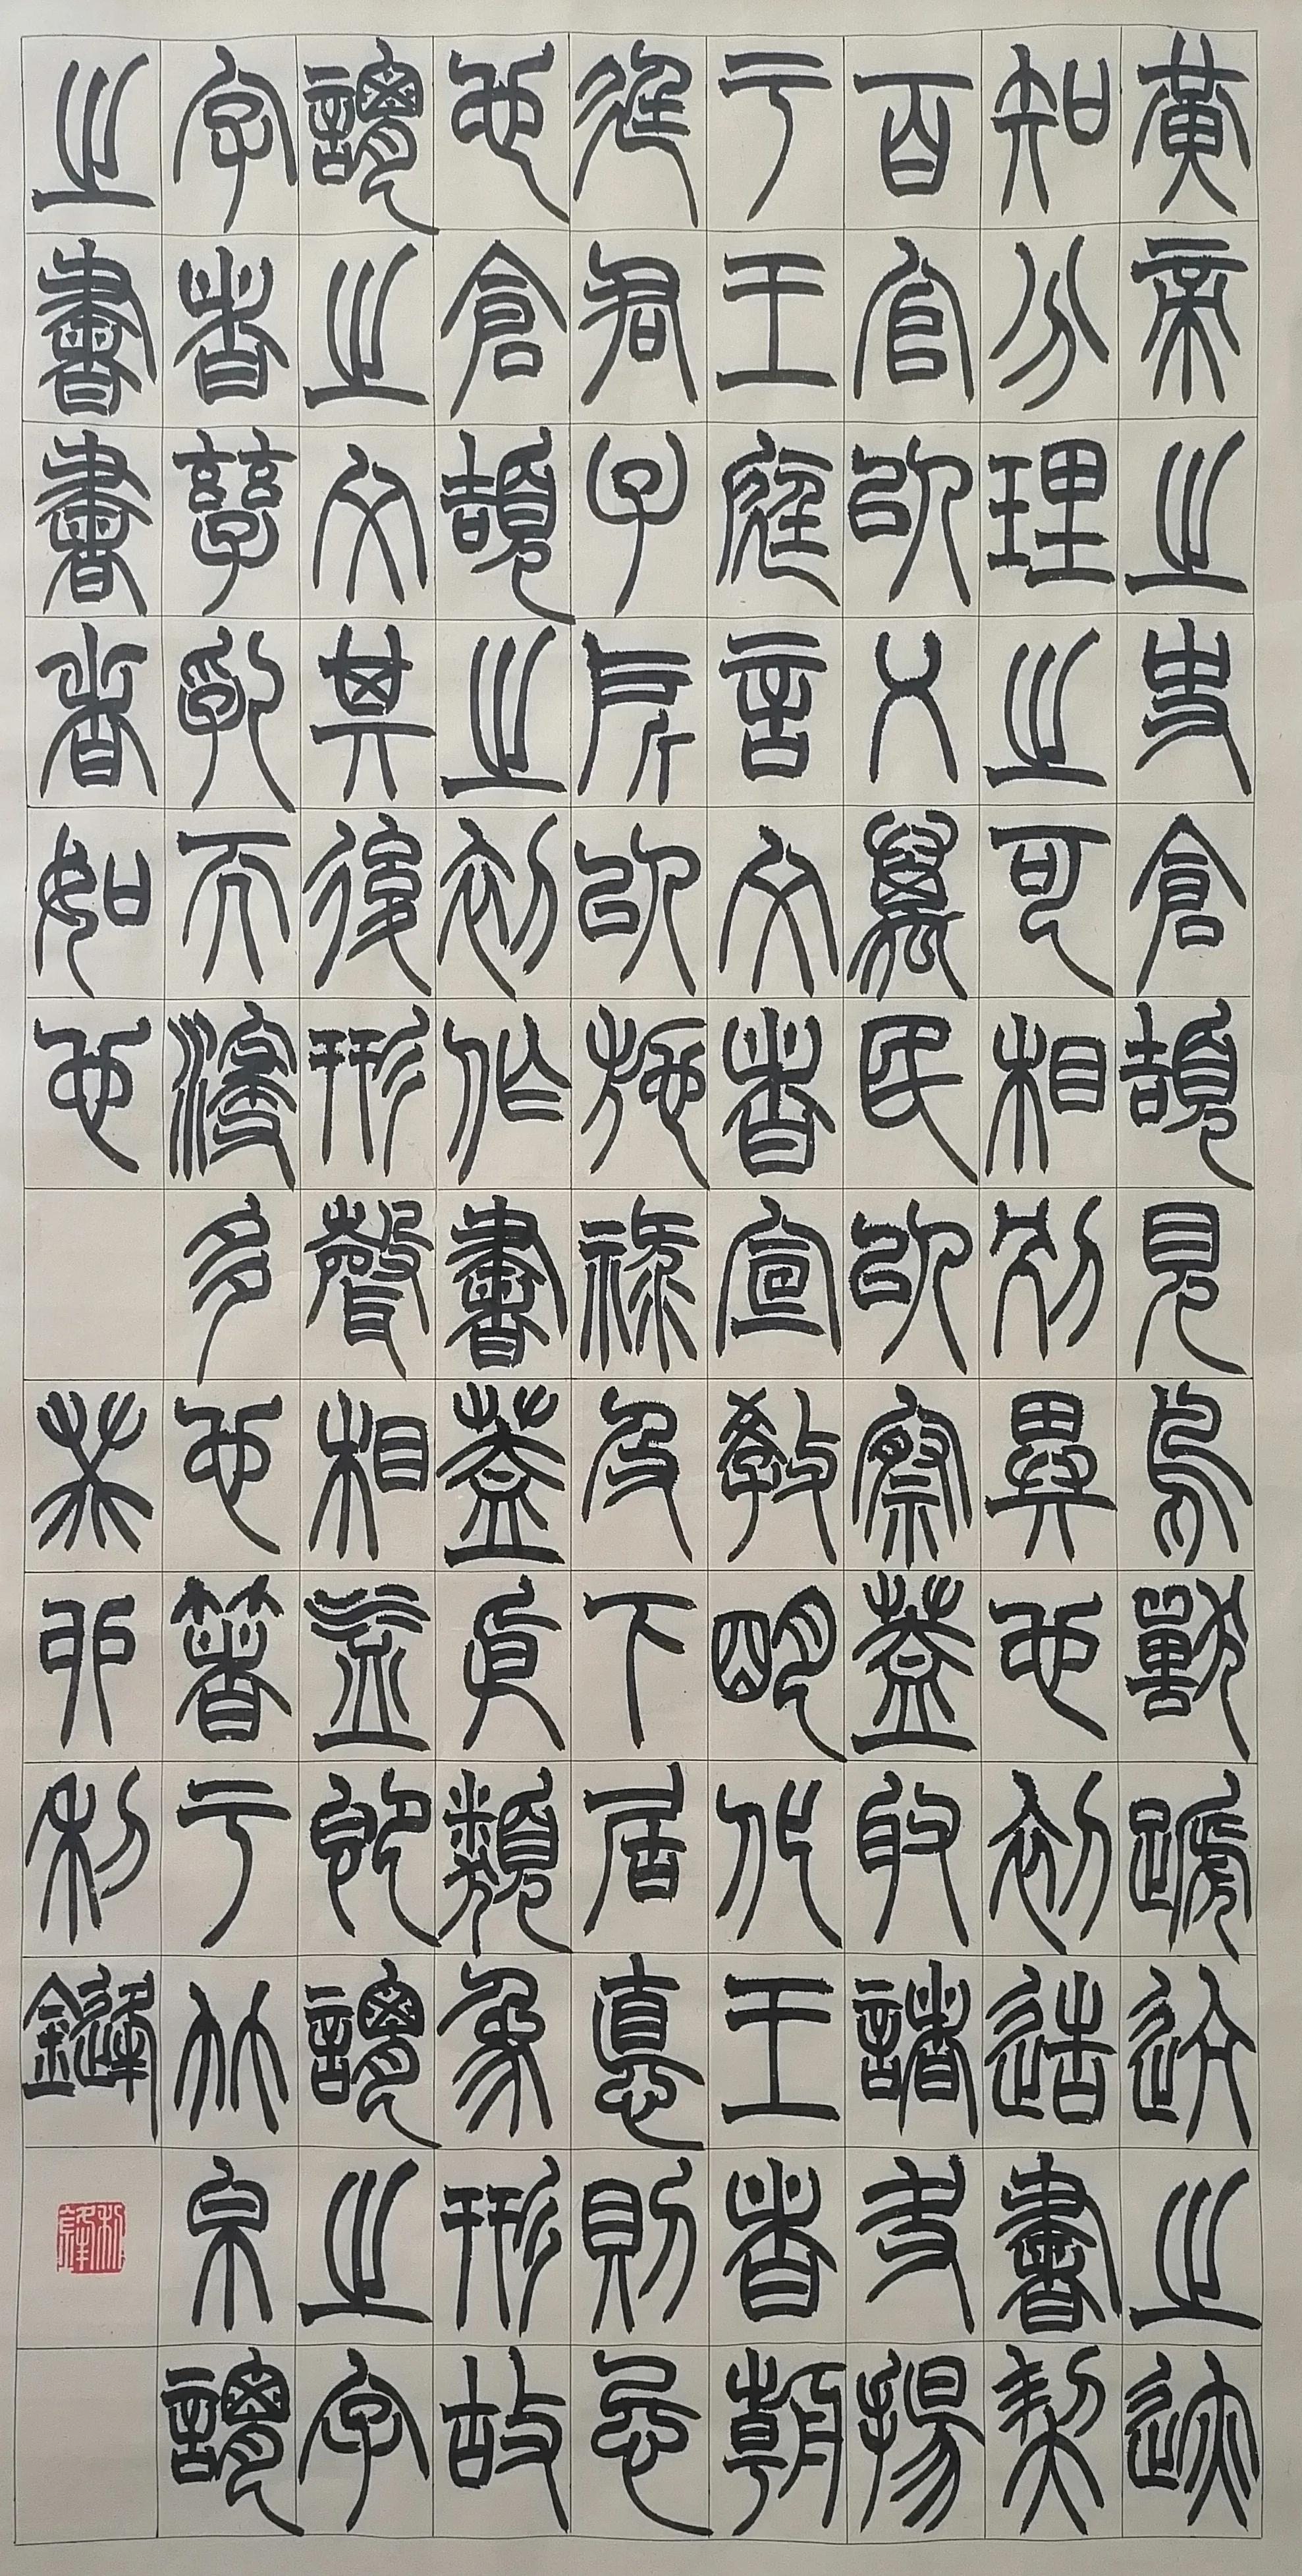 黃帝之史倉頡見鳥獸蹏迒之迹
知分理之可相別異也初造書契
百官㠯乂萬民㠯察蓋取諸夬揚
于王庭言文者宣教明化王者朝
廷君子所㠯施祿及下居悳則忌
也倉頡之初作書蓋依類象形故
謂之文其後形聲相益即謂之字
字者孳乳而濅多也箸于竹帛謂
之書書者如也 癸卯利鏠